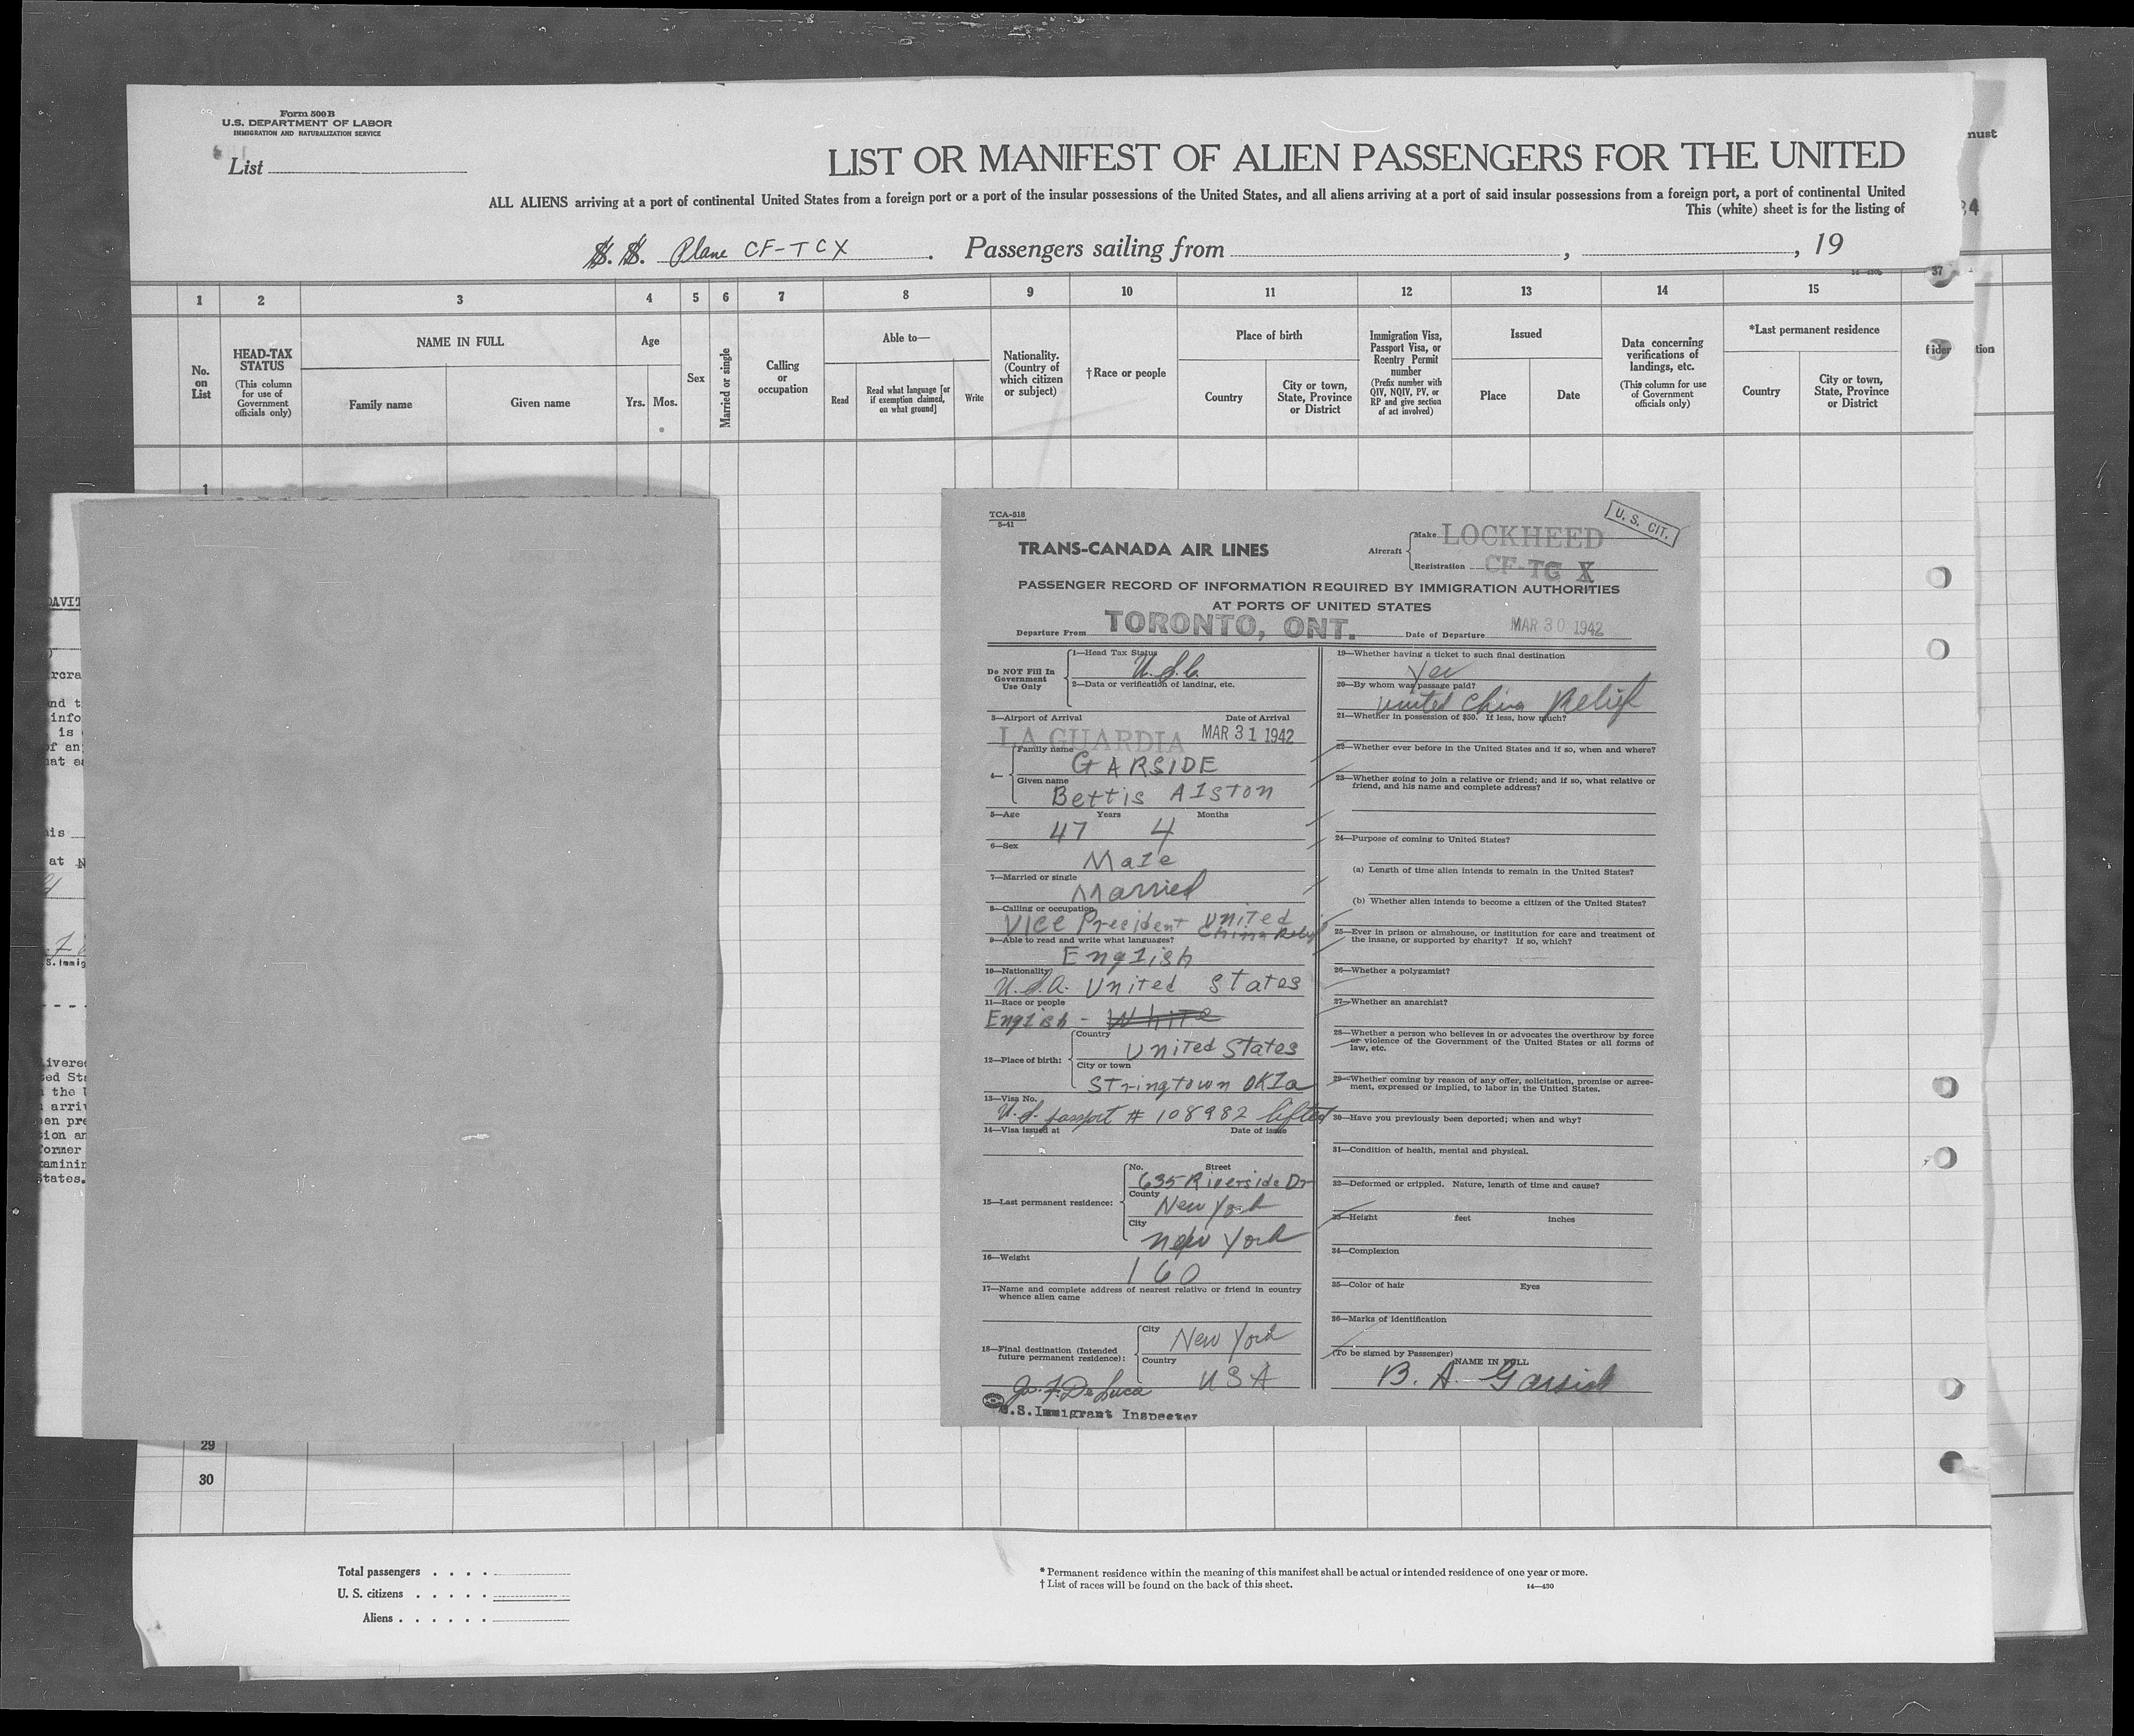 Form 500 B
U.S. DEPARTMENT OF LABOR
IMMIGRATION AND NATURALIZATION SERVICE
List
LIST OR MANIFEST OF ALIEN PASSENGERS FOR THE UNITED
ALL ALIENS arriving at a port of continental United States from a foreign port or a port of the insular possessions of the United States, and all aliens arriving at a port of said insular possessions from a foreign port, a port of continental United
This (white) sheet is for the listing of
S. S. Plane CF-TCX . Passengers sailing from , , 19
1 2 3 4 5 6 7 8 9 10 11 12 13 14 15
No. on List
HEAD-TAX STATUS
(This column for use of Government officials only)
NAME IN FULL
Family name
Given name
Age
Yrs. Mos.
Sex
Married or single
Calling or occupation
Able to—
Read
Read what language [or if exemption claimed, on what ground]
Write
Nationality. (Country of which citizen or subject)
†Race or people
Place of birth
Country
City or town, State, Province or District
Immigration Visa, Passport Visa, or Reentry Permit number
(Prefix number with QIV, NQIV, PV, or RP and give section of act involved)
Issued
Place
Date
Data concerning verifications of landings, etc.
(This column for use of Government officials only)
*Last permanent residence
Country
City or town, State, Province or District
1
TCA-518
5-41
U. S. CIT.
TRANS-CANADA AIR LINES
Aircraft
Make LOCKHEED
Registration CF-TC X
PASSENGER RECORD OF INFORMATION REQUIRED BY IMMIGRATION AUTHORITIES
AT PORTS OF UNITED STATES
Departure From TORONTO, ONT. Date of Departure MAR 30 1942
Do NOT Fill In Government Use Only
1—Head Tax Status
U.S.C.
2—Data or verification of landing, etc.
3—Airport of Arrival Date of Arrival
LA GUARDIA MAR 31 1942
4—
Family name
GARSIDE
Given name
Bettis Alston
5—Age Years Months
47 4
6—Sex
Male
7—Married or single
Married
8—Calling or occupation
Vice President United
China Relief
9—Able to read and write what languages?
English
10—Nationality
U.S.A. United States
11—Race or people
English - White
12—Place of birth:
Country
United States
City or town
Stringtown Okla
13—Visa No.
U.S. passport # 108982 lifted
14—Visa issued at Date of issue
15—Last permanent residence:
No. Street
635 Riverside Dr
County
New York
City
New York
16—Weight
160
17—Name and complete address of nearest relative or friend in country
whence alien came
18—Final destination (Intended
future permanent residence):
City
New York
Country
USA
Jos. F. De Luca
U.S. Immigrant Inspector
19—Whether having a ticket to such final destination
Yes
20—By whom was passage paid?
United China Relief
21—Whether in possession of $50. If less, how much?
22—Whether ever before in the United States and if so, when and where?
23—Whether going to join a relative or friend; and if so, what relative or
friend, and his name and complete address?
24—Purpose of coming to United States?
(a) Length of time alien intends to remain in the United States?
(b) Whether alien intends to become a citizen of the United States?
25—Ever in prison or almshouse, or institution for care and treatment of
the insane, or supported by charity? If so, which?
26—Whether a polygamist?
27—Whether an anarchist?
28—Whether a person who believes in or advocates the overthrow by force
or violence of the Government of the United States or all forms of
law, etc.
29—Whether coming by reason of any offer, solicitation, promise or agree-
ment, expressed or implied, to labor in the United States.
30—Have you previously been deported; when and why?
31—Condition of health, mental and physical.
32—Deformed or crippled. Nature, length of time and cause?
33—Height feet inches
34—Complexion
35—Color of hair Eyes
36—Marks of identification
(To be signed by Passenger)
NAME IN FULL
B. A. Garside
29
30
Total passengers
U. S. citizens
Aliens
* Permanent residence within the meaning of this manifest shall be actual or intended residence of one year or more.
† List of races will be found on the back of this sheet.
14—430